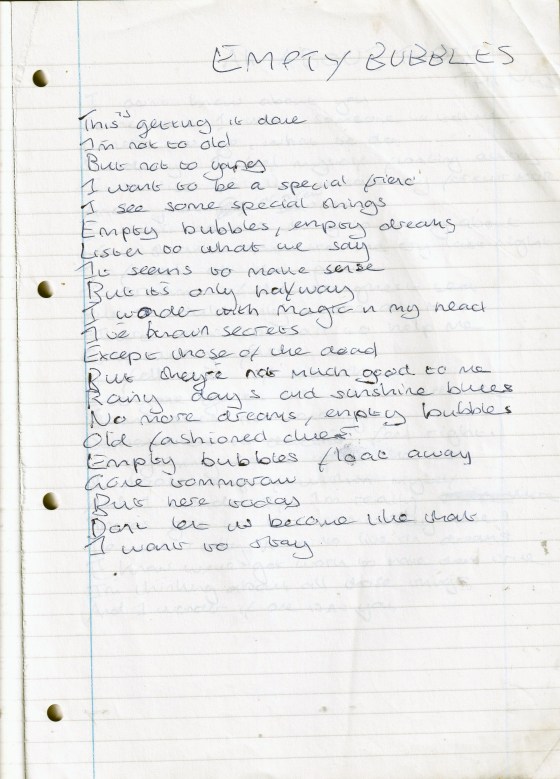 EMPTY BUBBLES
This is getting it done
I'm not to old
But not to young
I want to be a special friend
I see some special things
Empty bubbles, empty dreams
Listen to what we say
It seems to make sense
But it's only halfway
I wonder with magic in my head
I've known secrets
Except those of the dead
But they're not much good to me
Rainy day's and sunshine blues
No more dreams, empty bubbles
Old fashioned
Empty bubbles float away
Gone tommorow
But here today
Dont let us become like that
I want to stay